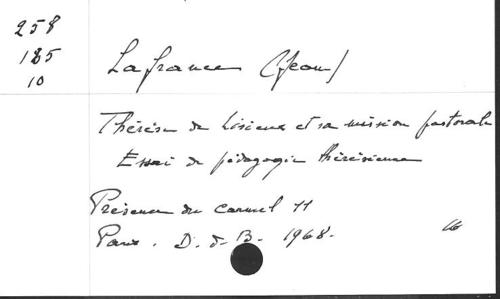 258
185
10
Lafrance (Jean)
Thérèse de Lisieux et sa mission pastorale
Essai de pédagogie thérésienne
Présence du carmel 11
Paris. D. d. B. 1968.